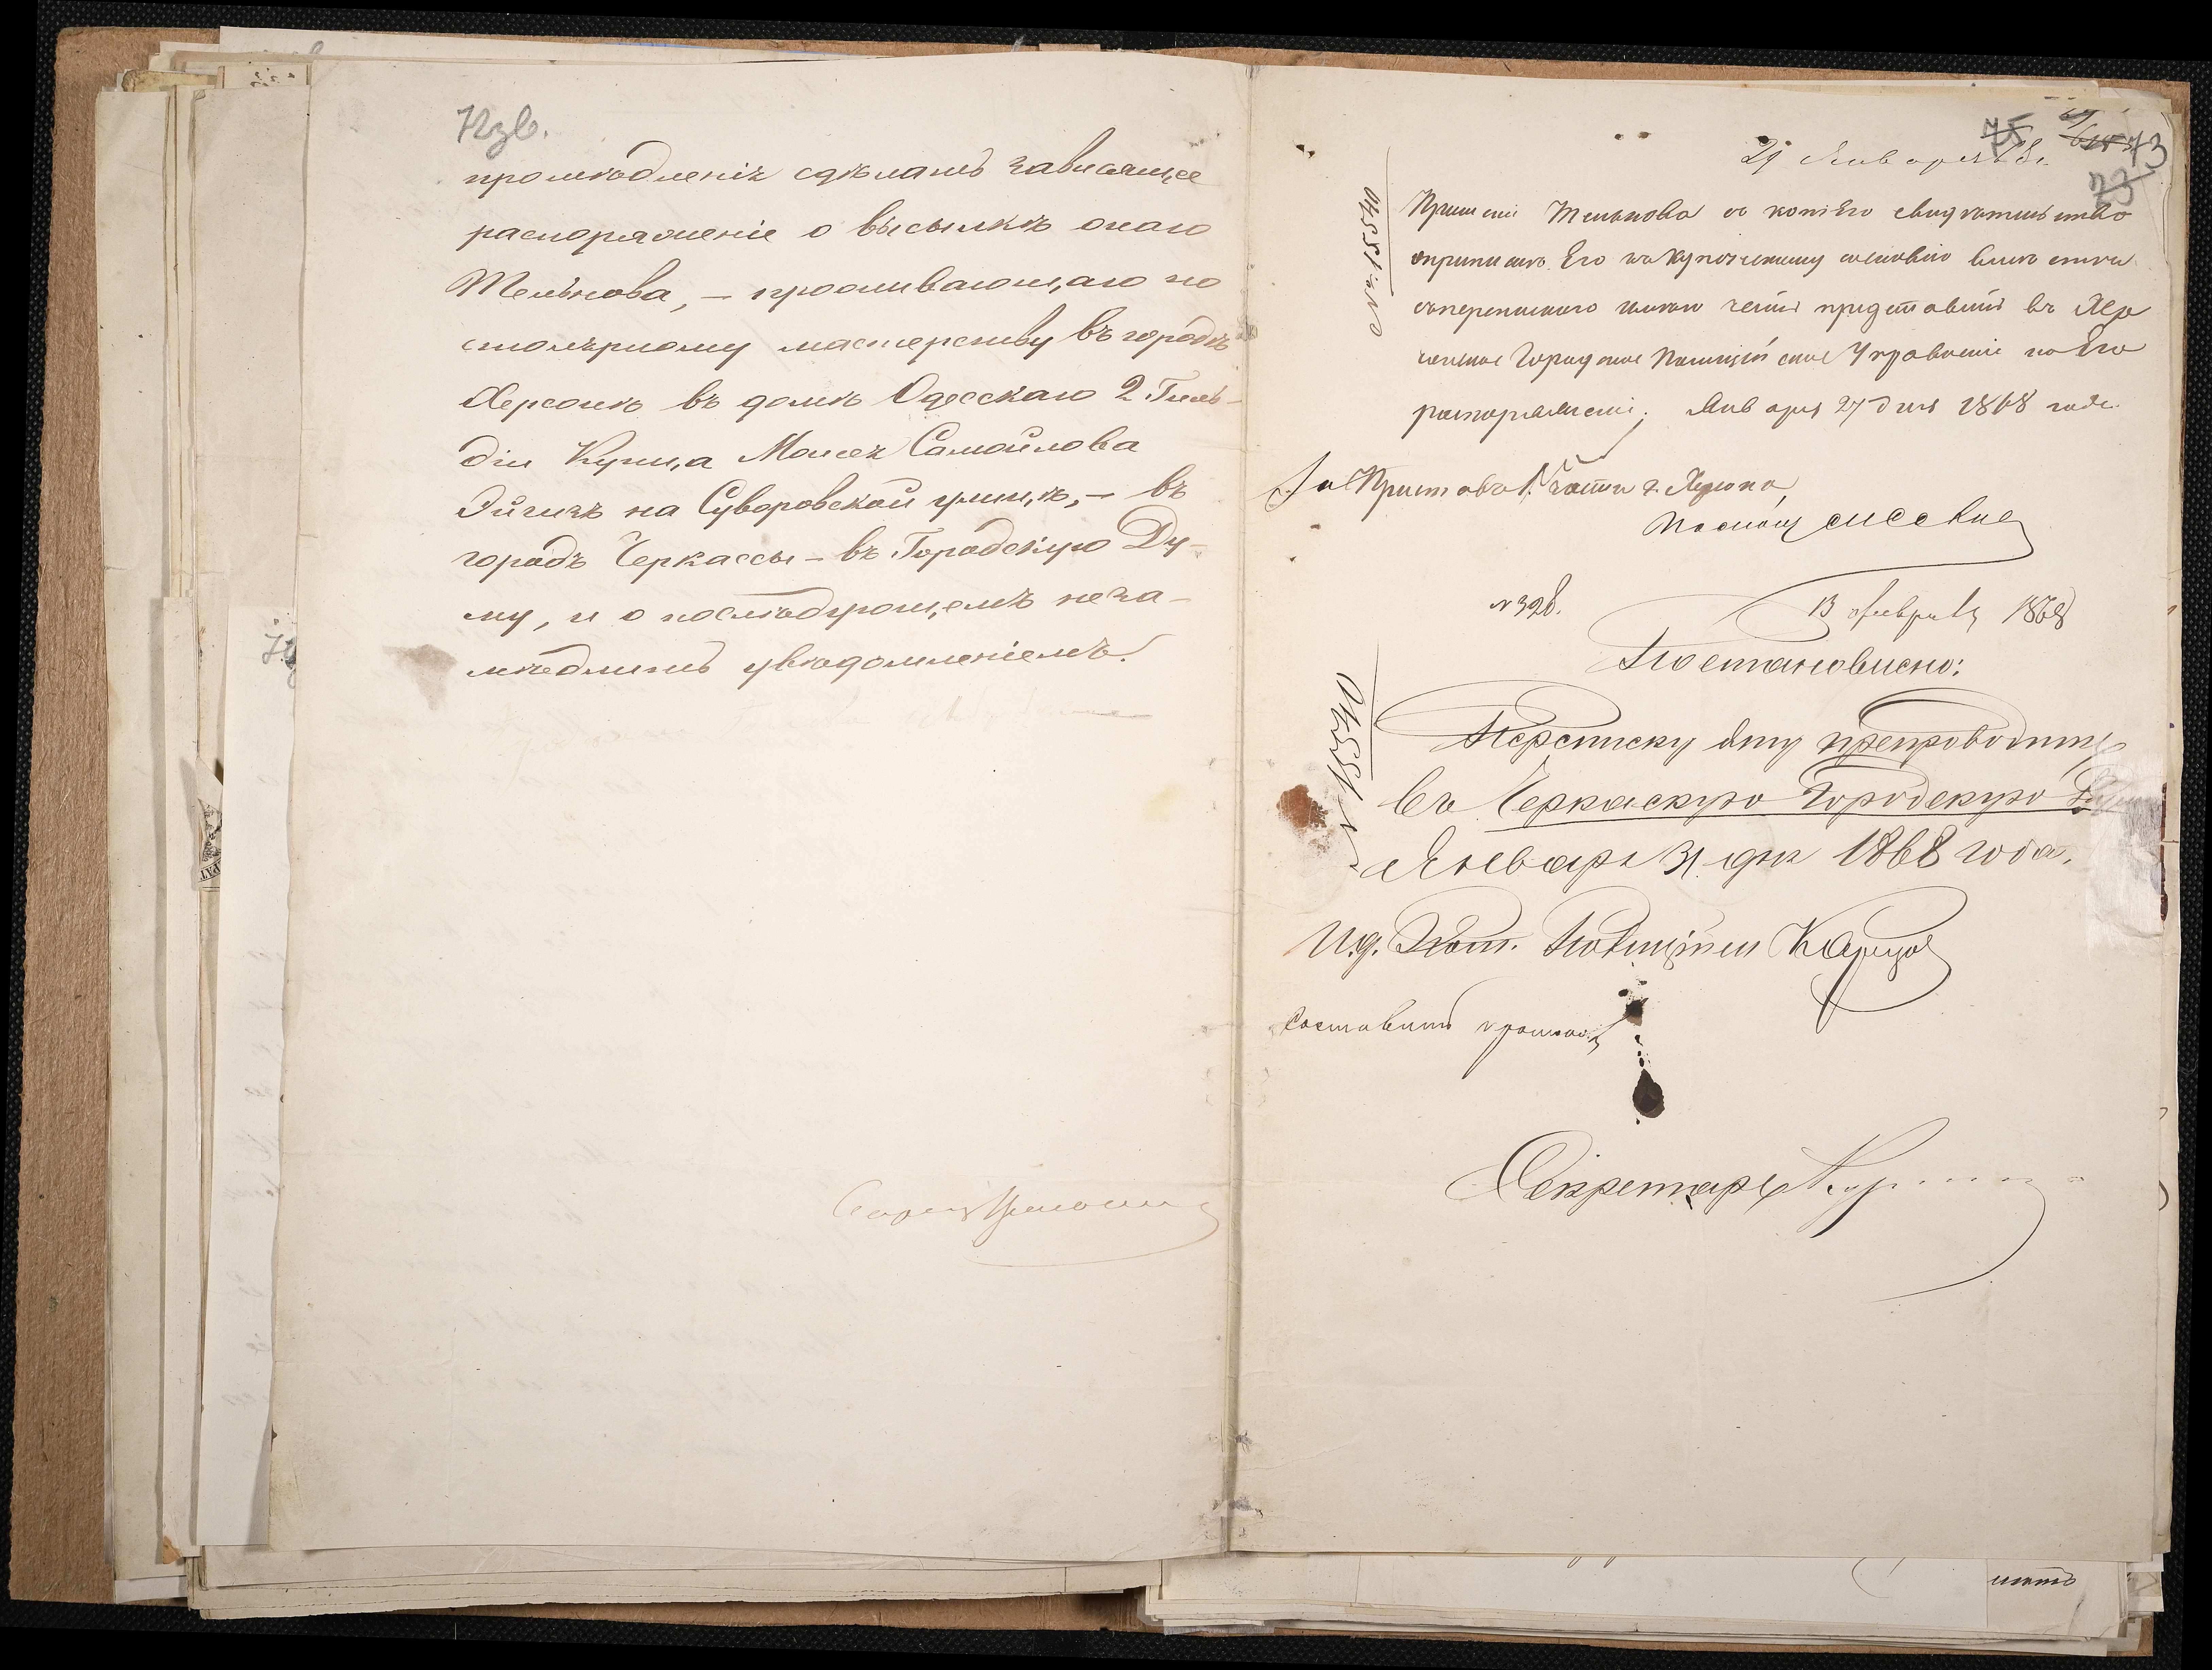 72зв.
промедленія сдѣлать зависящее
распоряженіе о высылкѣ онаго
Тельнова, – проживающаго по
столярному мастерству въ городѣ
Херсонѣ въ домѣ Одесскаго 2 Гиль-
діи Купца Моисея Самойлова
на Суворовской улицѣ, – въ
городъ Черкассы – въ Городскую Ду-
му, и о послѣдующемъ неза-
медлить увѣдомленіемъ.
75 73
73
29 Января 68 г.
Прошеніе Тельнова съ копіею свидѣтельства
оприпискѣ Его къ Купеческому сословію вмѣстѣ съ
перепискою имѣю честь представить въ Хер
сонское Городское Полицейское Управленіе по Его
распоряженію. Января 27 дня 1868 года.
За Пристава 1 Части г. Херсона
№ 328.
13 Февраля 1868
Постановлено:
Переписку эту препроводить
въ Черкаскую Городскую Думу
Января 31 дня 1868 года.
И.д. Полиціймейстера
Составить
Секретарь